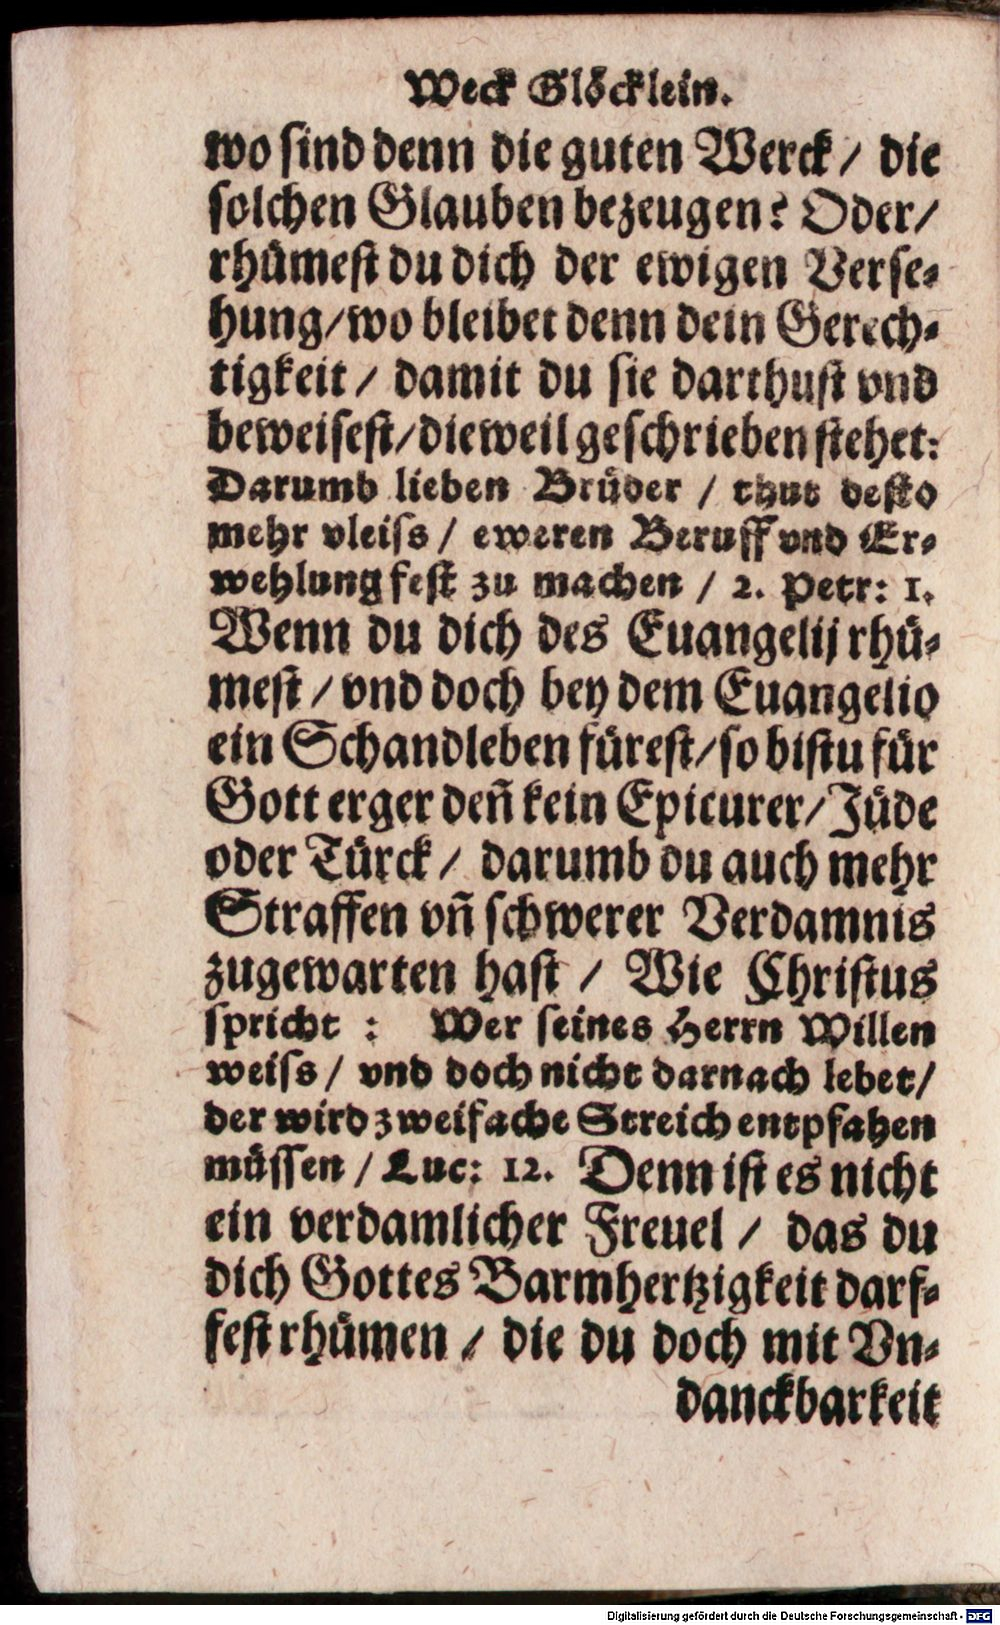 Weck Glöcklein.
wo sind denn die guten Werck / die
solchen Glauben bezeugen? Oder /
rhümest du dich der ewigen Verse-
hung / wo bleibet denn dein Gerech-
tigkeit / damit du sie darthust vnd
beweisest / dieweil geschrieben stehet:
Darumb lieben Brüder / thut desto
mehr vleiss / eweren Beruff vnd Er-
wehlung fest zu machen / 2. Petr: 1.
Wenn du dich des Euangelij rhü-
mest / vnd doch bey dem Euangelio
ein Schandleben fürest / so bistu für
Gott erger deñ kein Epicurer / Jüde
oder Türck / darumb du auch mehr
Straffen vñ schwerer Verdamnis
zugewarten hast / Wie Christus
spricht : Wer seines Herrn Willen
weiss / vnd doch nicht darnach lebet /
der wird zweifache Streich entpfahen
müssen / Luc: 12. Denn ist es nicht
ein verdamlicher Freuel / das du
dich Gottes Barmhertzigkeit darf-
fest rhümen / die du doch mit Vn-
danckbarkeit
Digitalisierung gefördert durch die Deutsche Forschungsgemeinschaft - DFG